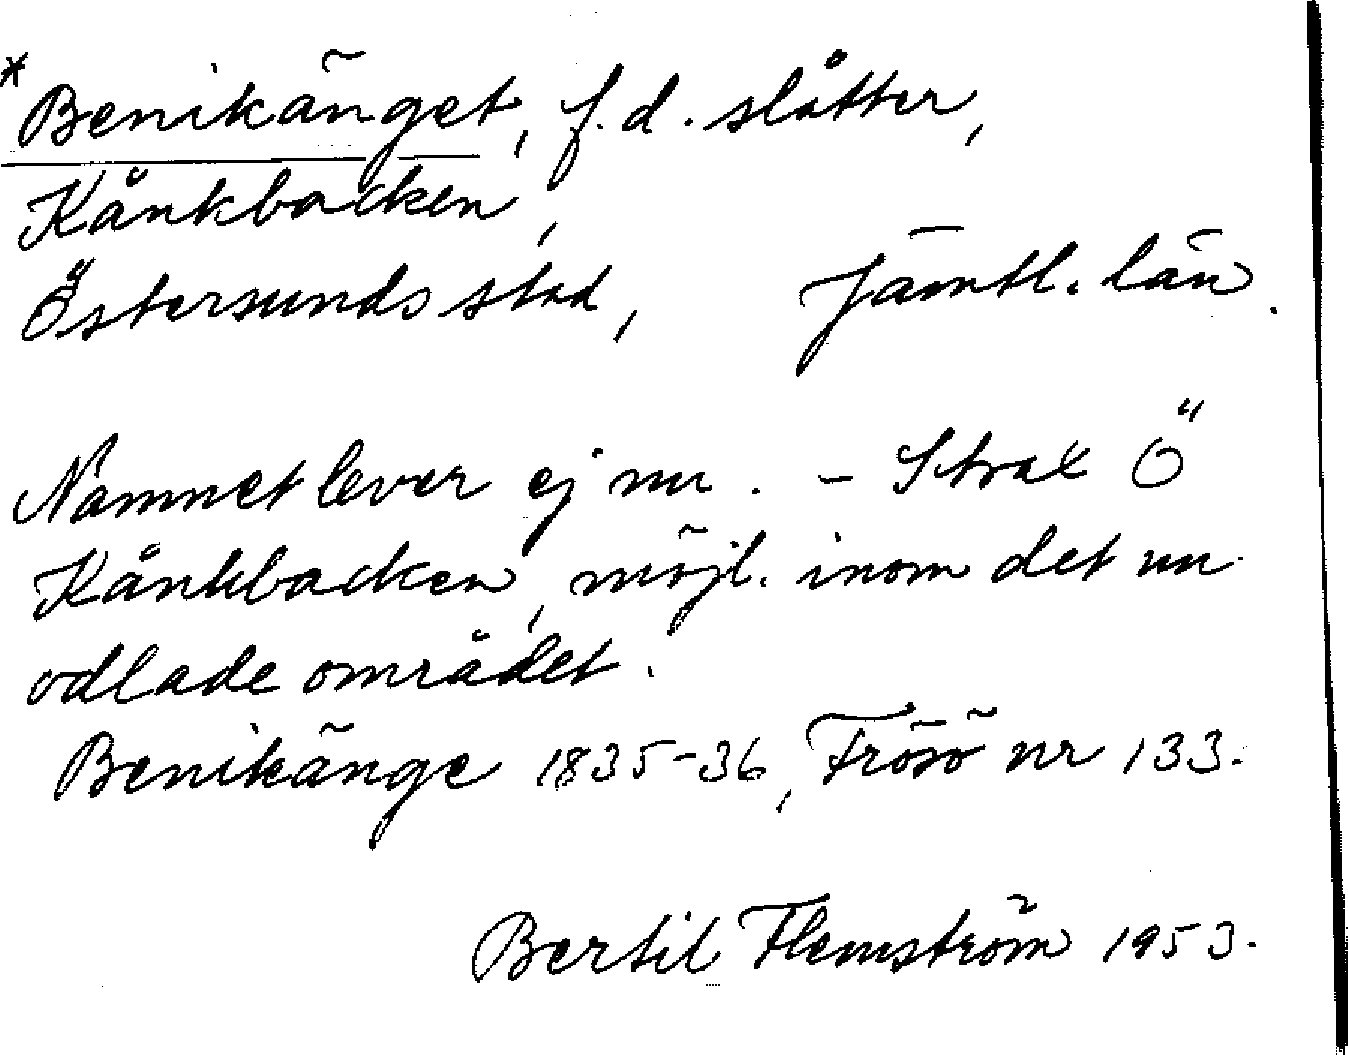 *Benikänget, f.d. slåtter,
Kånkbacken,
Östersunds stad, Jämtl. län.
Namnet lever ej nu. - Strax Ö
Kånkbacken, möjl. inom det nu
odlade området.
Benikänge 1835-36, Frösö nr 133.
Bertil Flemström 1953.